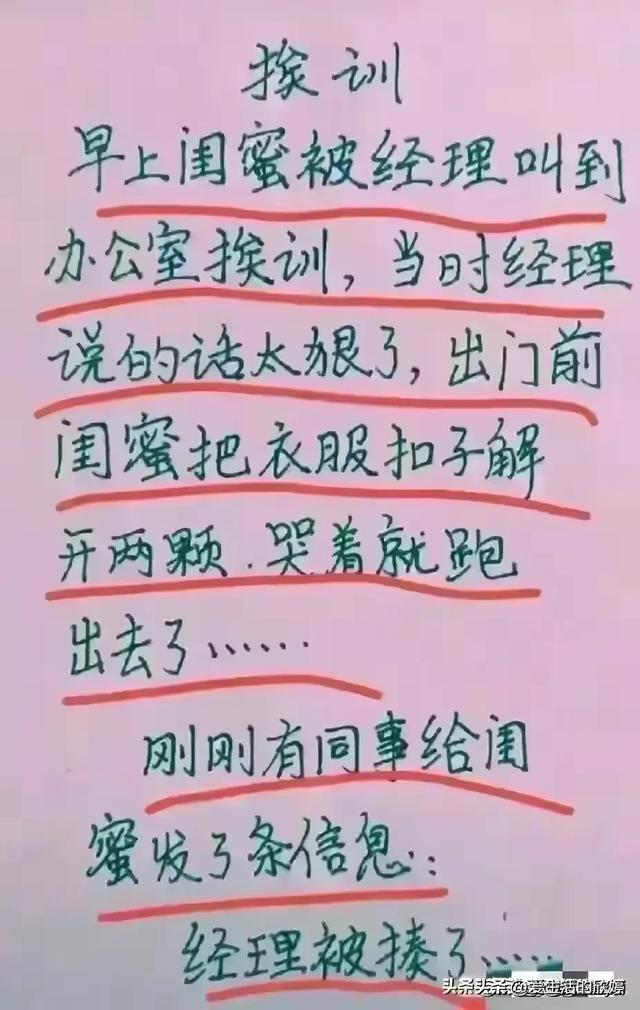 挨训
早上闺蜜被经理叫到
办公室挨训，当时经理
说的话太狠了，出门前
闺蜜把衣服扣子解
开两颗.哭着就跑
出去了……
刚刚有同事给闺
蜜发了条信息：
经理被揍了……
头条头条@爱生活的欣婷